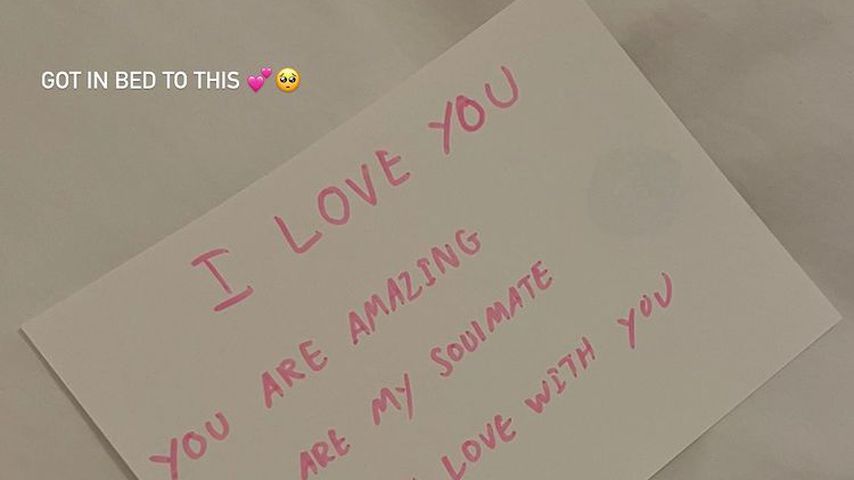 GOT IN BED TO THIS 💕🥺
I LOVE YOU
YOU ARE AMAZING
ARE MY SOULMATE
LOVE WITH YOU